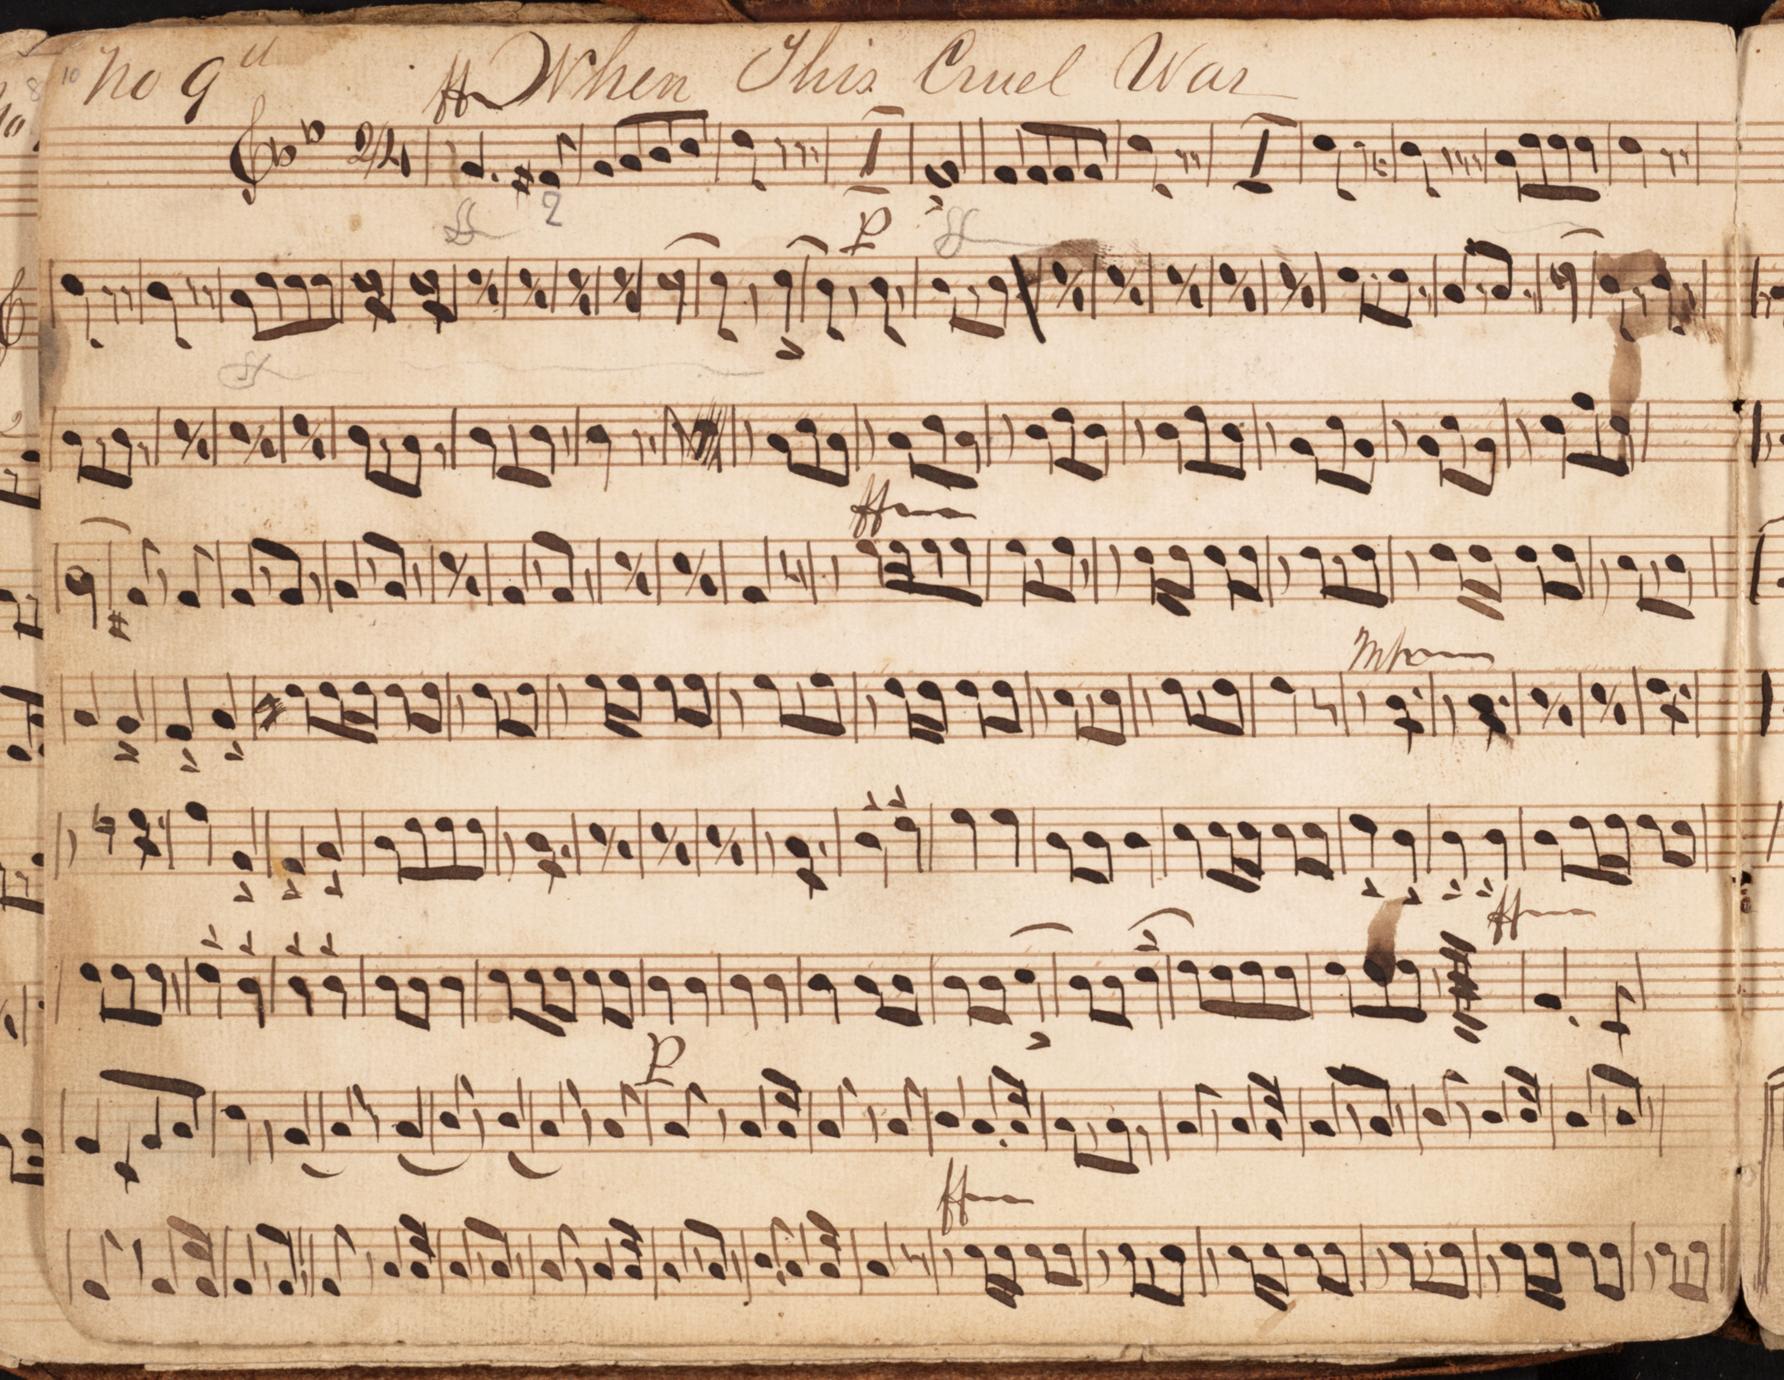 10 No 9th ff When This Cruel War
2/4
2
P
ff
mf
ff
P
ff